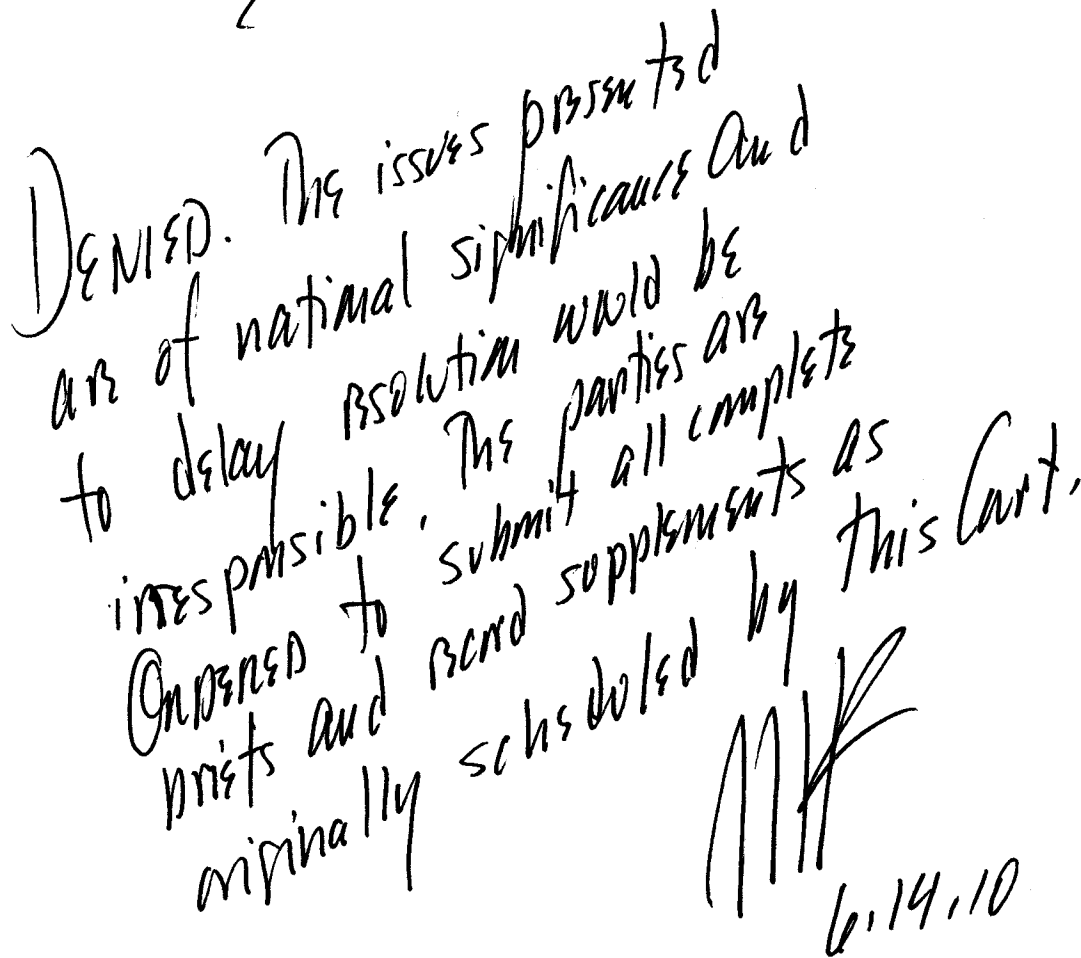 DENIED. The issues presented
are of national significance and
to delay resolution would be
irresponsible. The parties are
ORDERED to submit all complete
briefs and record supplements as
originally scheduled by this Court.
6.14.10